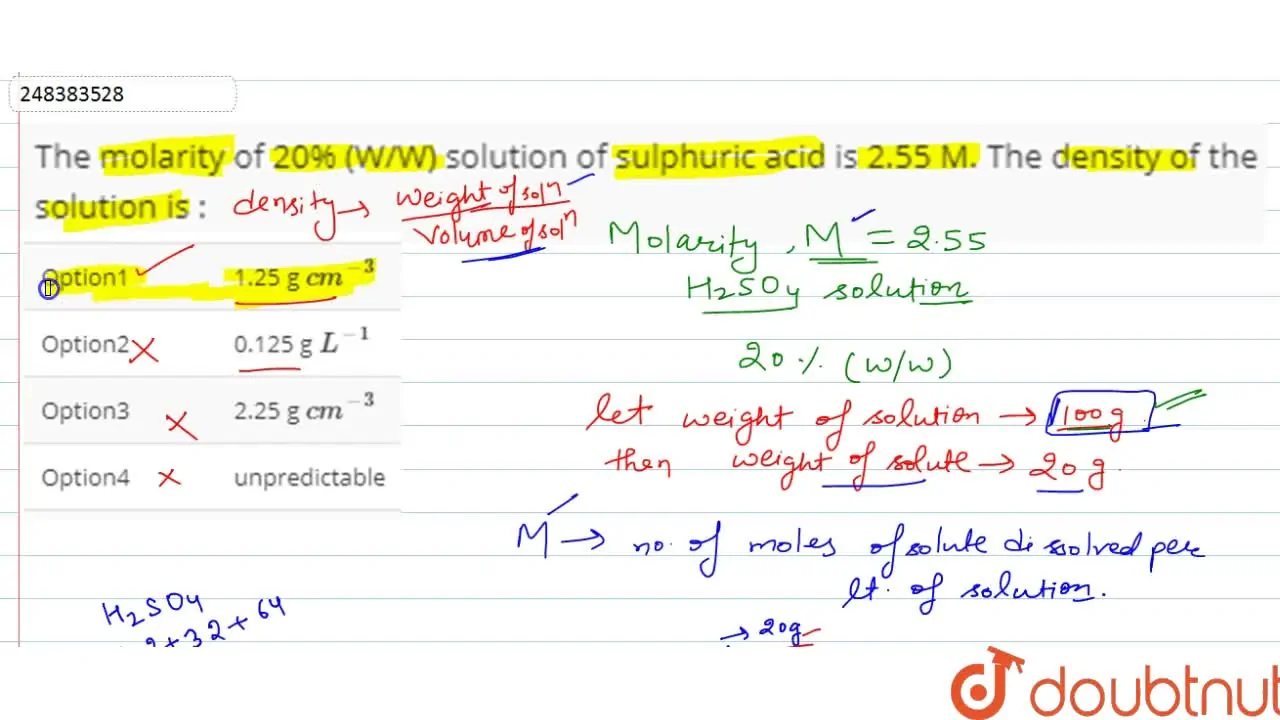 248383528
The molarity of 20% (W/W) solution of sulphuric acid is 2.55 M. The density of the
solution is :
density → weight of solⁿ
Volume of solⁿ
Molarity, M = 2.55
H₂SO₄ solution
Option1 1.25 g cm⁻³
Option2 0.125 g L⁻¹
20 % (w/w)
Option3 2.25 g cm⁻³
let weight of solution → 100g
then weight of solute → 20 g
Option4 unpredictable
M → no. of moles of solute dissolved per
lt. of solution.
H₂SO₄
+ 32 + 64
→ 20g
doubtnut